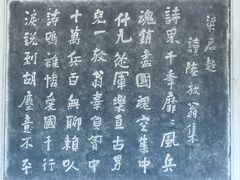 梁启超
讀陸放翁集
詩界千季靡〻風兵
魂銷盡國魂空集中
什九從軍樂亘古男
兒一放翁辜負胷中
十萬兵百無聊賴以
詩鳴誰憐愛國千行
淚說到胡塵意不平